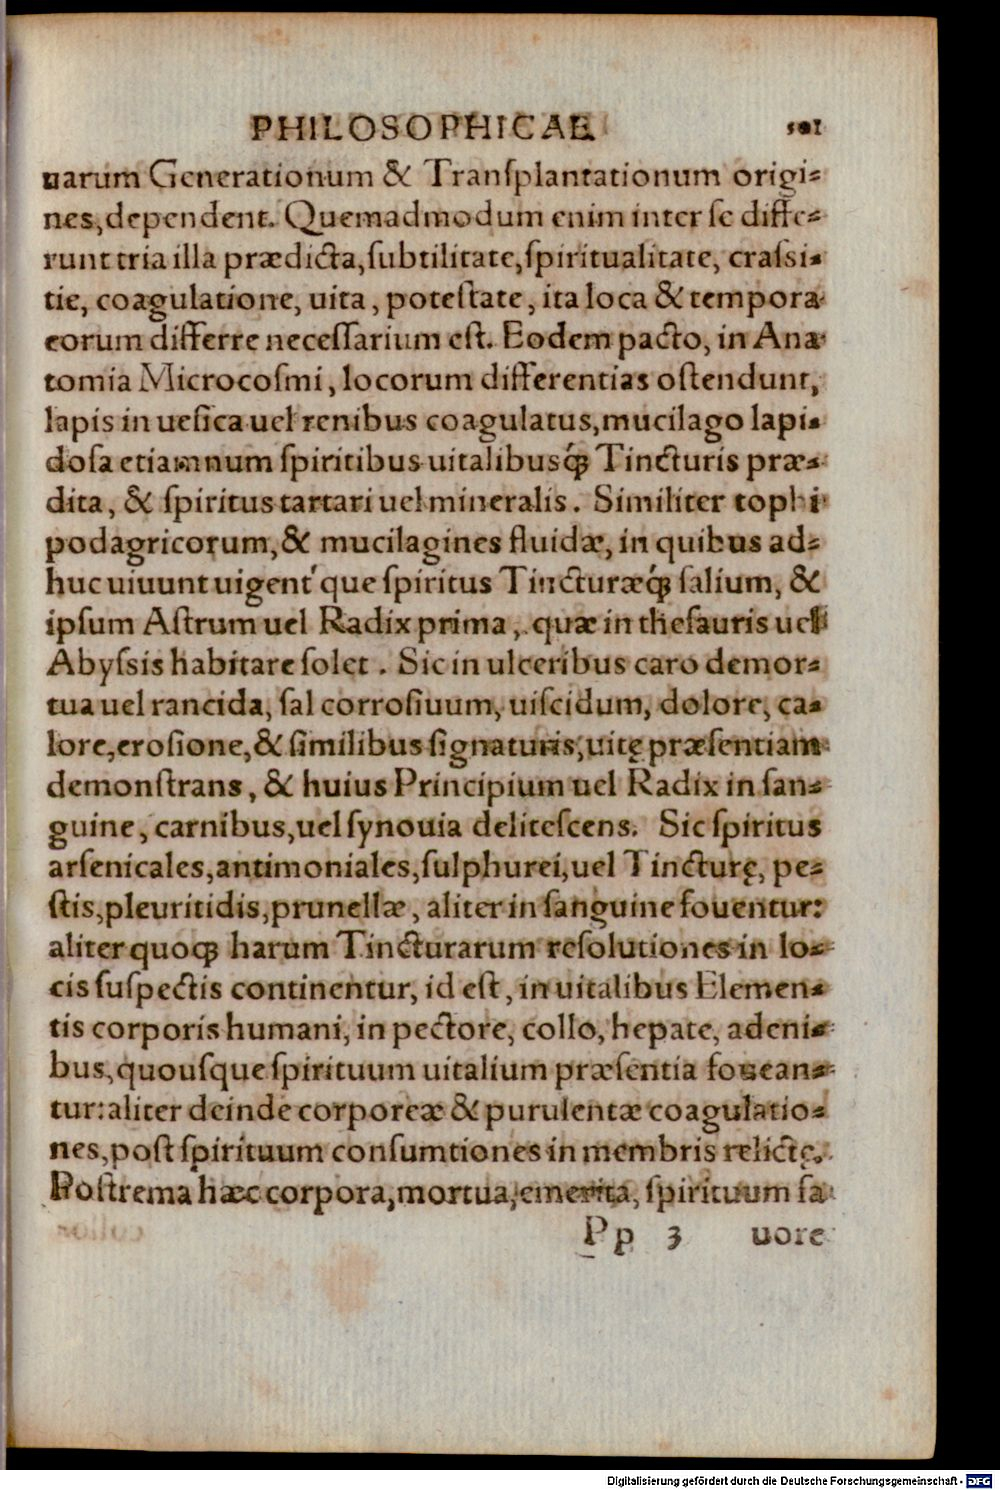 PHILOSOPHICAE 501
uarum Generationum & Transplantationum origi=
nes, dependent. Quemadmodum enim inter se diffe=
runt tria illa prædicta, subtilitate, spiritualitate, crassi=
tie, coagulatione, uita, potestate, ita loca & tempora
eorum differre necessarium est. Eodem pacto, in Ana
tomia Microcosmi, locorum differentias ostendunt,
lapis in uesica uel renibus coagulatus, mucilago lapi=
dosa etiamnum spiritibus uitalibusq́ꝫ Tincturis præ=
dita, & spiritus tartari uel mineralis. Similiter tophi
podagricorum, & mucilagines fluidæ, in quibus ad=
huc uiuunt uigent'que spiritus Tincturæq́ꝫ salium, &
ipsum Astrum uel Radix prima, quæ in thesauris uel
Abyssis habitare solet. Sic in ulceribus caro demor=
tua uel rancida, sal corrosiuum, uiscidum, dolore, ca=
lore, erosione, & similibus signaturis, uitę præsentiam
demonstrans, & huius Principium uel Radix in san=
guine, carnibus, uel synouia delitescens. Sic spiritus
arsenicales, antimoniales, sulphurei, uel Tincturę, pe=
stis, pleuritidis, prunellæ, aliter in sanguine fouentur:
aliter quoqꝫ harum Tincturarum resolutiones in lo=
cis suspectis continentur, id est, in uitalibus Elemen=
tis corporis humani, in pectore, collo, hepate, adeni=
bus, quousque spirituum uitalium præsentia fouean=
tur: aliter deinde corporeæ & purulentæ coagulatio=
nes, post spirituum consumtiones in membris relictę.
Postrema hæc corpora, mortua, emerita, spirituum sa
Pp 3 uore
Digitalisierung gefördert durch die Deutsche Forschungsgemeinschaft - DFG